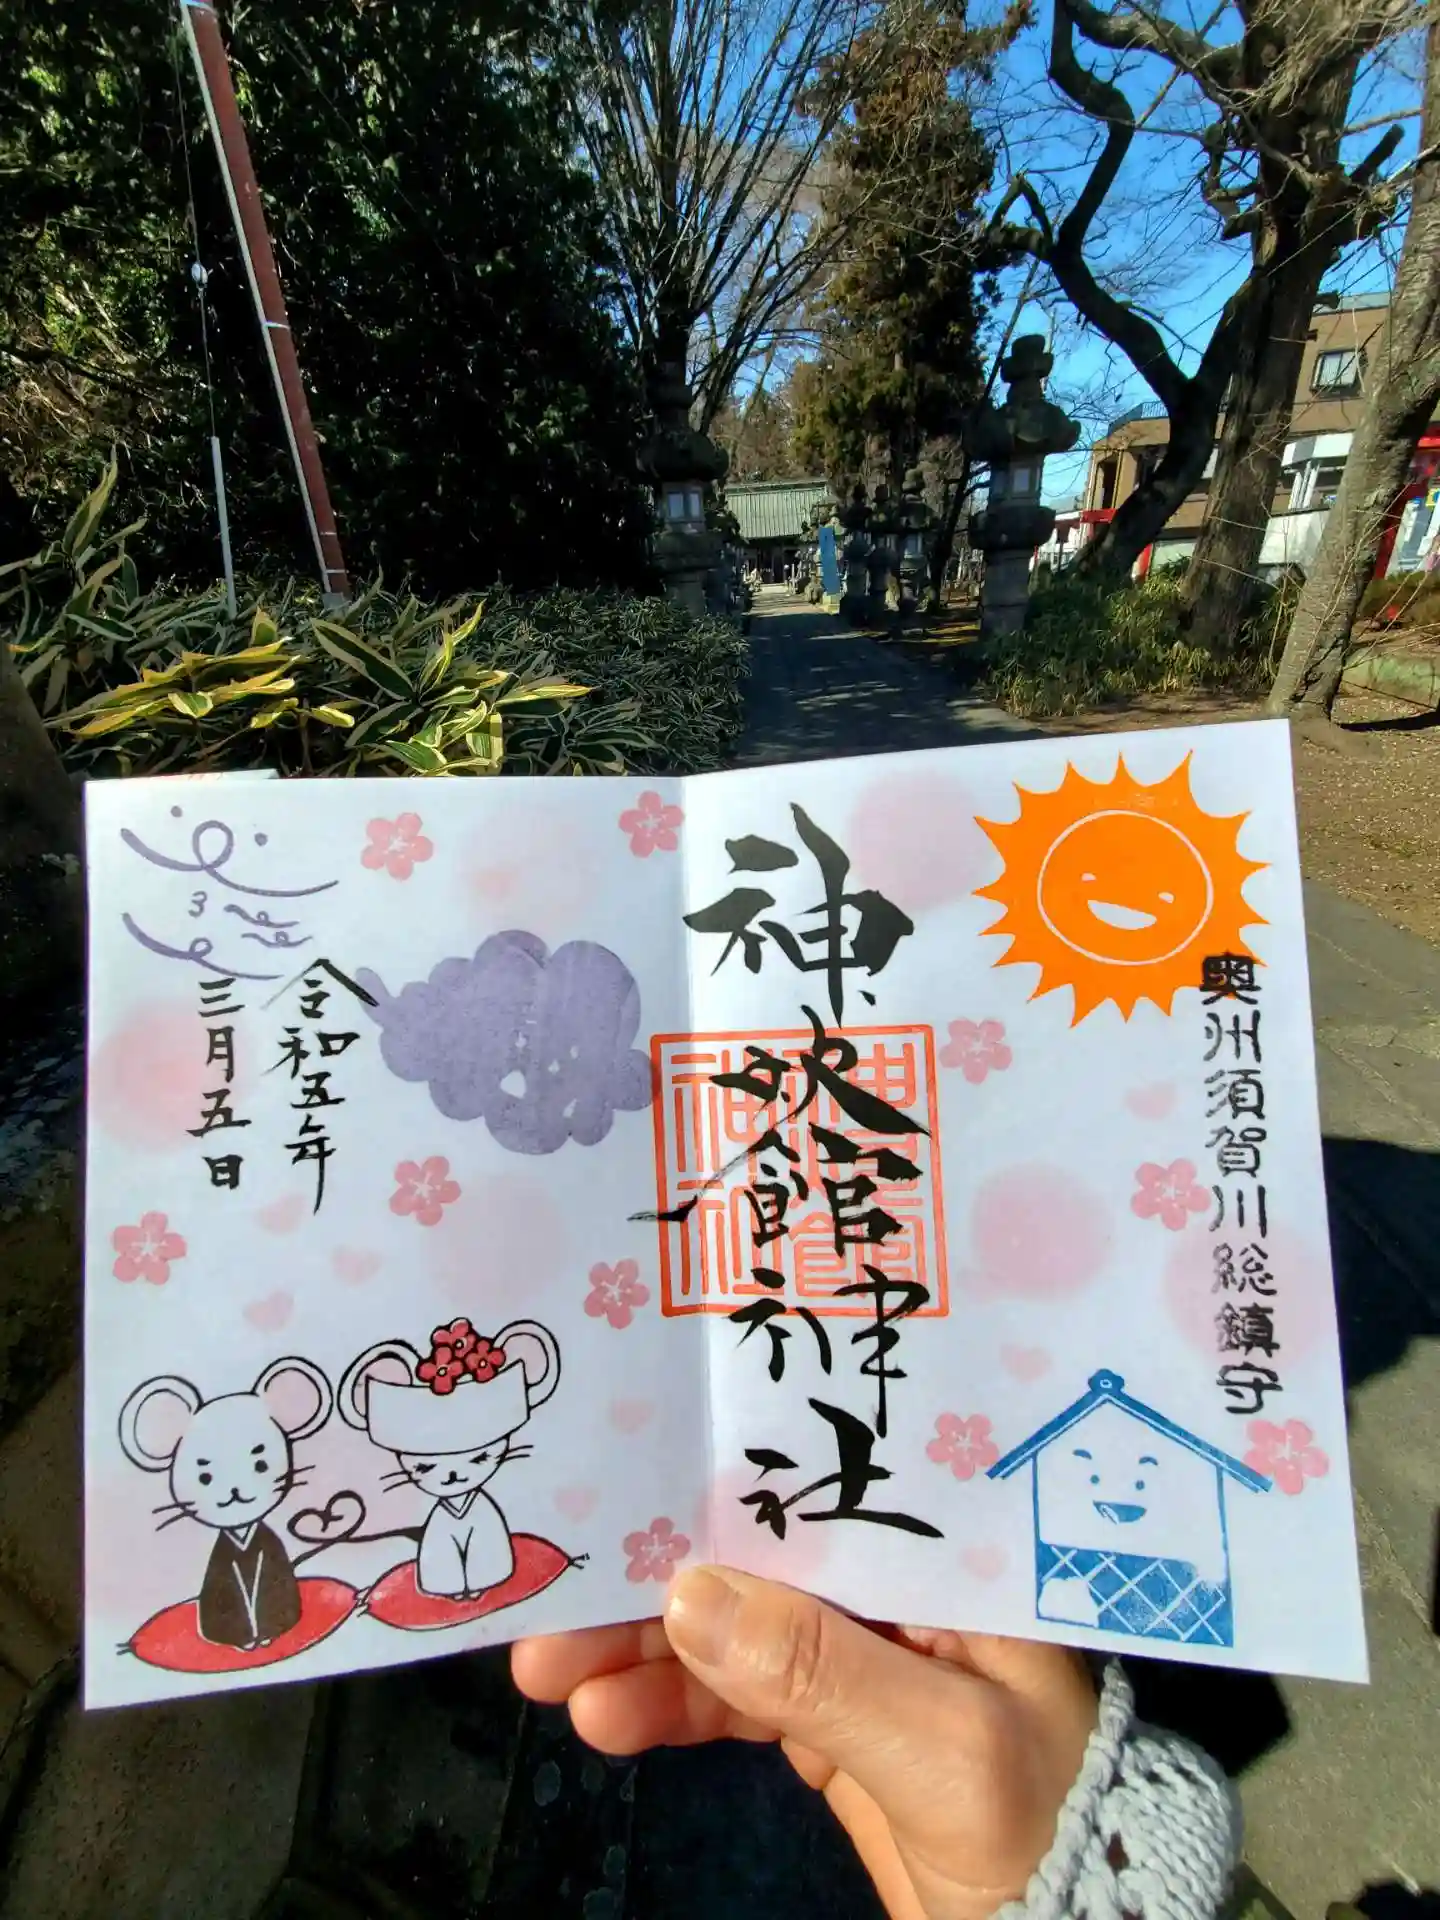 奥州須賀川総鎮守
神炊館神社
神炊館
神社
令和五年
三月五日